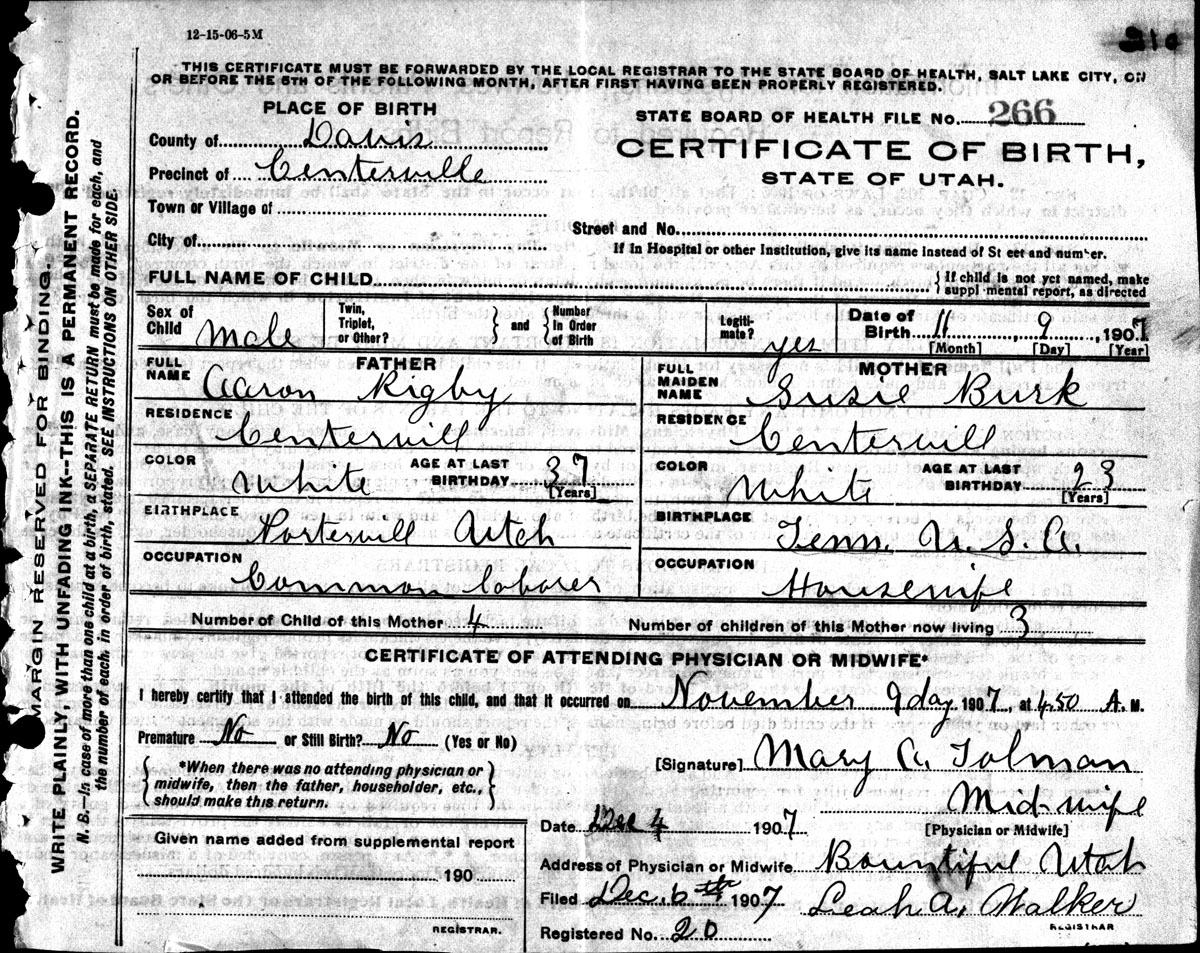 12-15-06-5M
210
THIS CERTIFICATE MUST BE FORWARDED BY THE LOCAL REGISTRAR TO THE STATE BOARD OF HEALTH, SALT LAKE CITY, ON
OR BEFORE THE 5TH OF THE FOLLOWING MONTH, AFTER FIRST HAVING BEEN PROPERLY REGISTERED.
PLACE OF BIRTH
County of Davis
Precinct of Centerville
Town or Village of
City of
STATE BOARD OF HEALTH FILE No. 266
CERTIFICATE OF BIRTH,
STATE OF UTAH.
Street and No.
If in Hospital or other Institution, give its name instead of St eet and number.
FULL NAME OF CHILD
{ If child is not yet named, make
suppl mental report, as directed
Sex of Child Male
Twin, Triplet, or Other? } and { Number In Order of Birth
Legiti-mate? yes
Date of Birth 11, 9, 1907
[Month] [Day] [Year]
FATHER
FULL NAME Aaron Rigby
RESIDENCE Centervill
COLOR White AGE AT LAST BIRTHDAY 37
[Years]
BIRTHPLACE Portervill Utah
OCCUPATION Common laborer
MOTHER
FULL MAIDEN NAME Susie Burk
RESIDENCE Centervill
COLOR White AGE AT LAST BIRTHDAY 23
[Years]
BIRTHPLACE Tenn. U.S.A.
OCCUPATION Housewife
Number of Child of this Mother 4 Number of children of this Mother now living 3
CERTIFICATE OF ATTENDING PHYSICIAN OR MIDWIFE*
I hereby certify that I attended the birth of this child, and that it occurred on November 9 day 1907, at 4.50 A. M.
Premature No or Still Birth? No (Yes or No)
{ *When there was no attending physician or
midwife, then the father, householder, etc.,
should make this return. }
[Signature] Mary A. Tolman
Mid-wife
[Physician or Midwife]
Date Dec 4 1907
Address of Physician or Midwife Bountiful Utah
Filed Dec. 6th 1907 Leah A. Walker
REGISTRAR
Registered No. 20
Given name added from supplemental report
190
REGISTRAR.
MARGIN RESERVED FOR BINDING.
WRITE PLAINLY, WITH UNFADING INK--THIS IS A PERMANENT RECORD.
N. B.—In case of more than one child at a birth, a SEPARATE RETURN must be made for each, and
the number of each, in order of birth, stated. SEE INSTRUCTIONS ON OTHER SIDE.